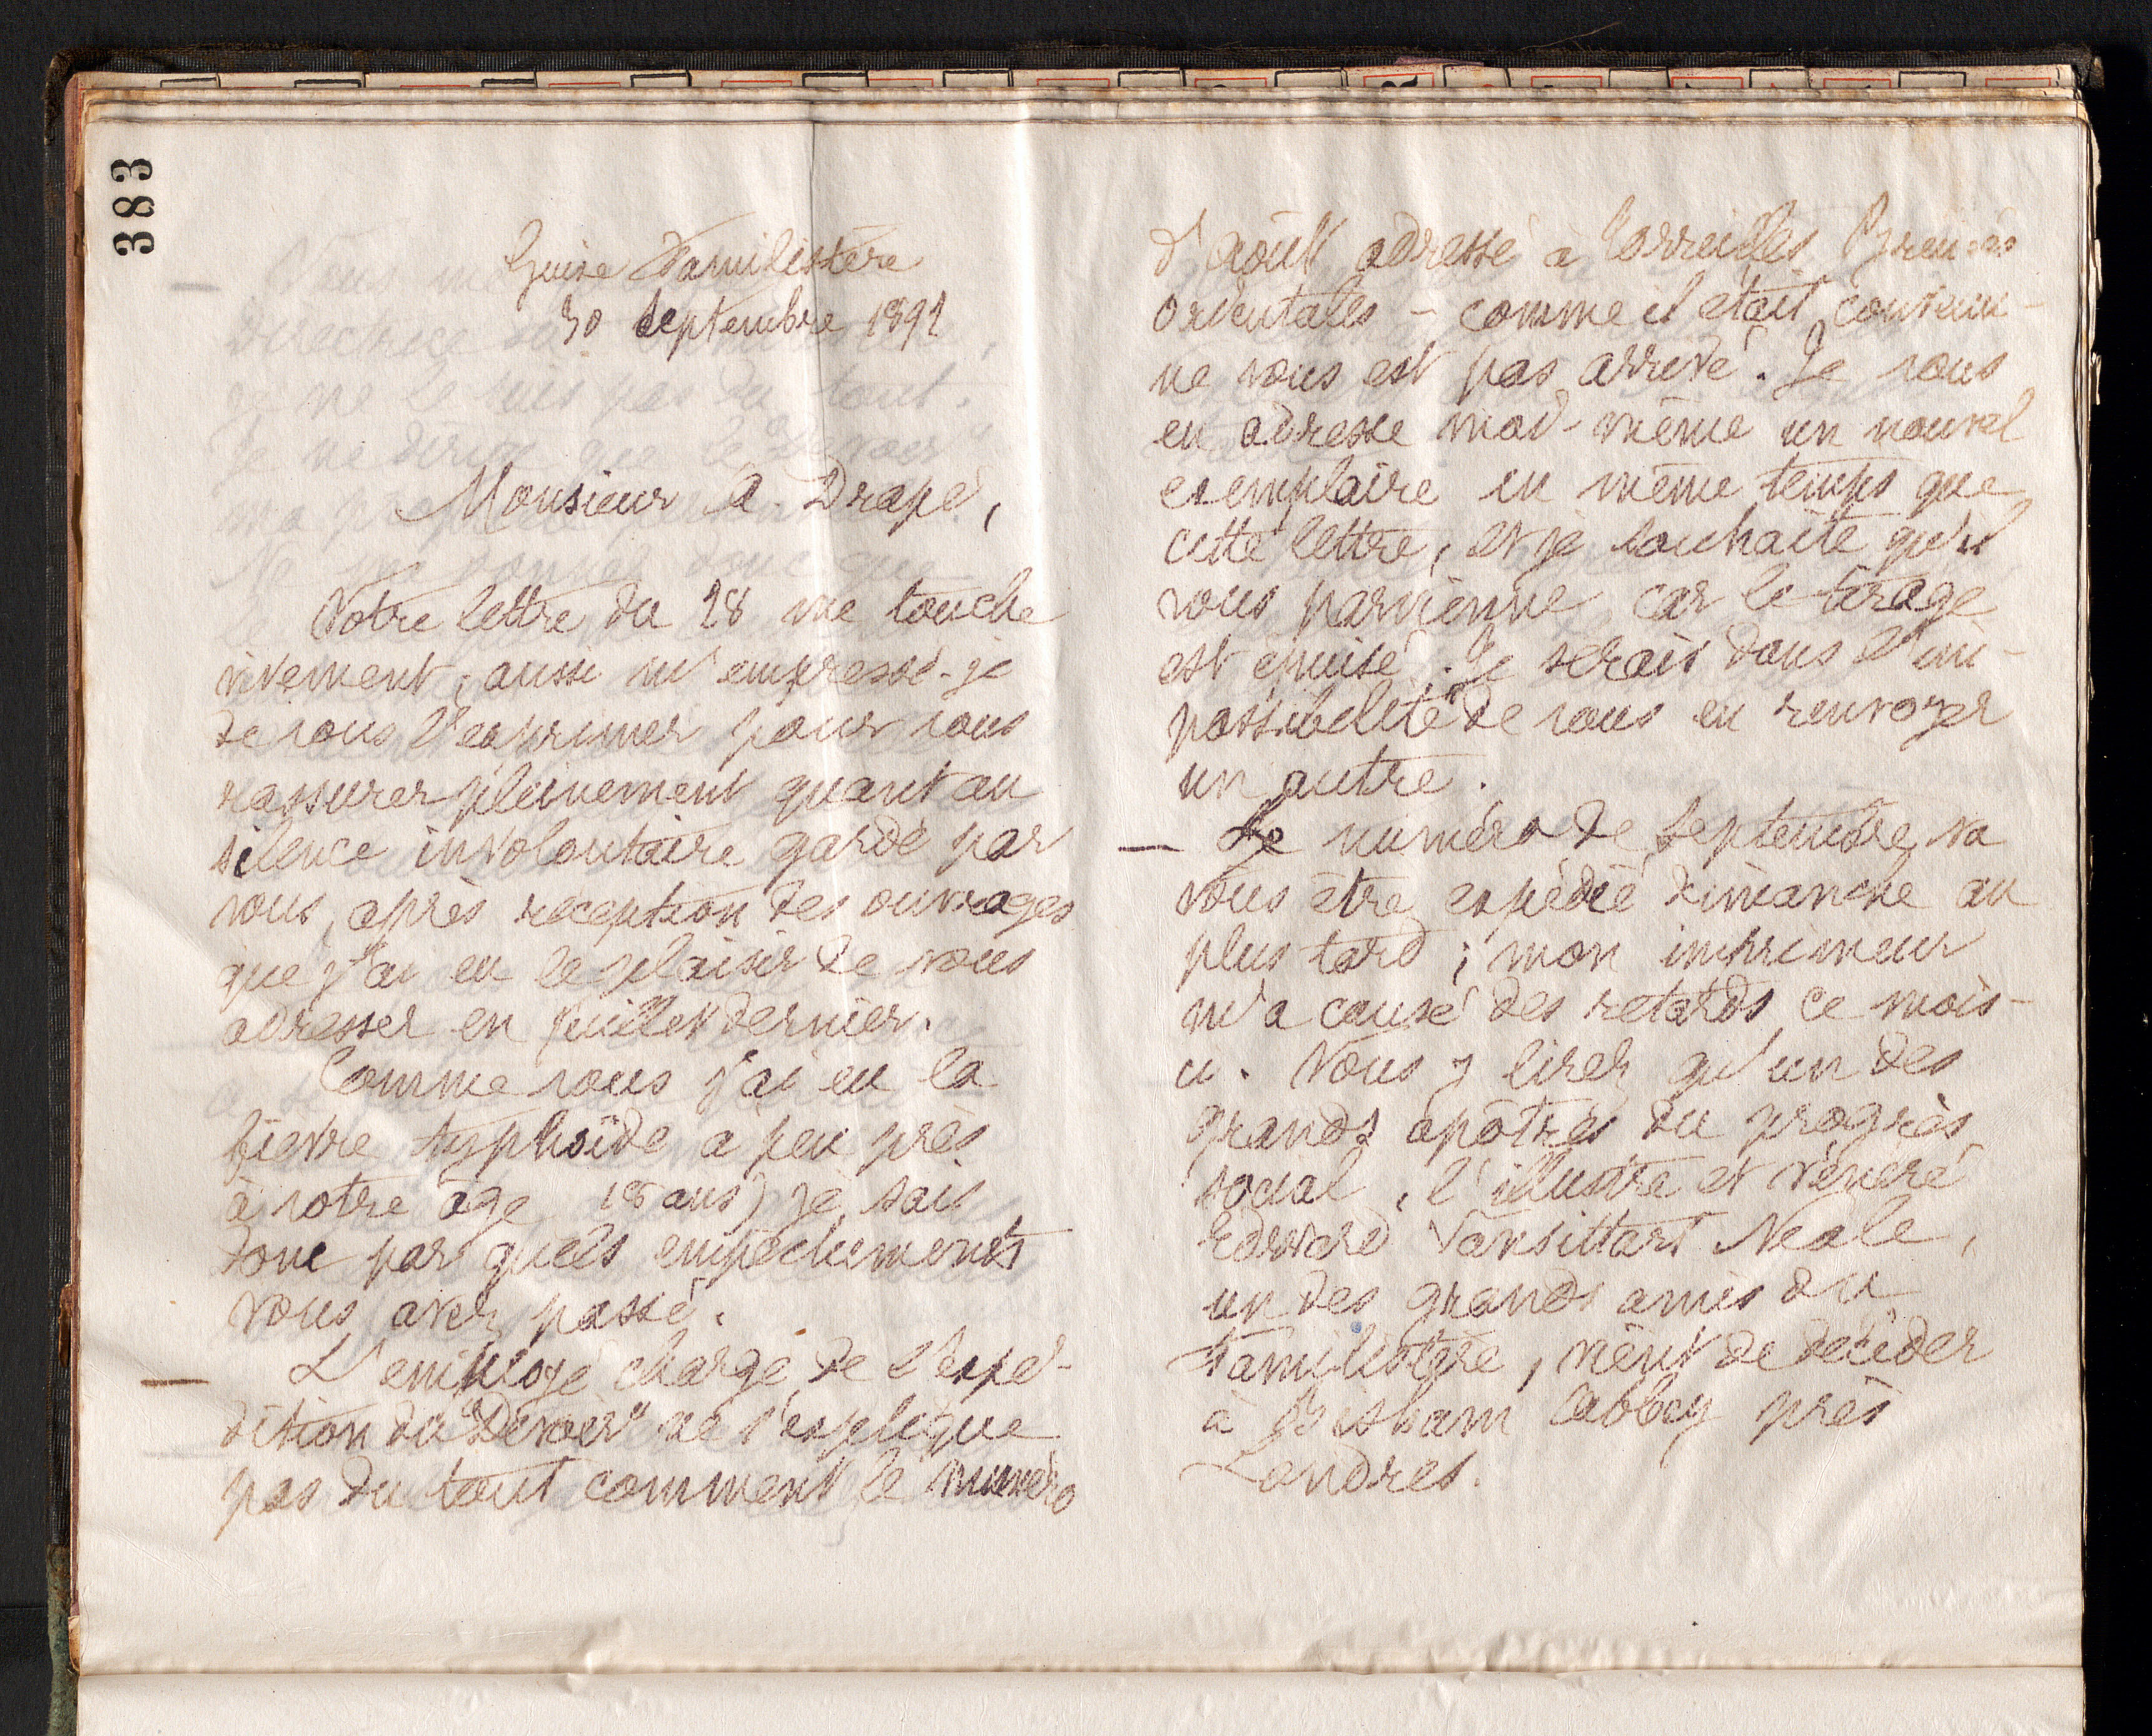 383
Guise Familistère
30 septembre 1892
Monsieur A. Drapé,
Votre lettre du 28 me touche
vivement, aussi m'empressé-je
de vous l'exprimer pour vous
rassurer pleinement quant au
silence involontaire gardé par
vous, après réception des ouvrages
que j'ai eu le plaisir de vous
adresser en juillet dernier.
Comme vous j'ai eu la
fièvre typhoïde à peu près
à votre âge 18 ans) je sais
donc par quels empêchements
vous avez passé.
— L'employé chargé de l'expé-
dition du "Devoir" ne s'explique
pas du tout comment le numéro
d'août adressé à Corneilles Pyrénées
orientales - comme il était convenu -
ne vous est pas arrivé. Je vous
en adresse moi-même un nouvel
exemplaire en même temps que
cette lettre, et je souhaite qu'il
vous parvienne car le tirage
est épuisé. Je serais dans l'im-
possibilité de vous en renvoyer
un autre.
— Le numéro de septembre va
vous être expédié dimanche au
plus tard ; mon imprimeur
m'a causé des retards ce mois-
ci. Vous y lirez qu'un des
grands apôtres du progrès
social, l'illustre et vénéré
Edward Vansittart Neale,
un des grands amis du
Familistère, vient de décéder
à Bisham Abbey près
Londres.